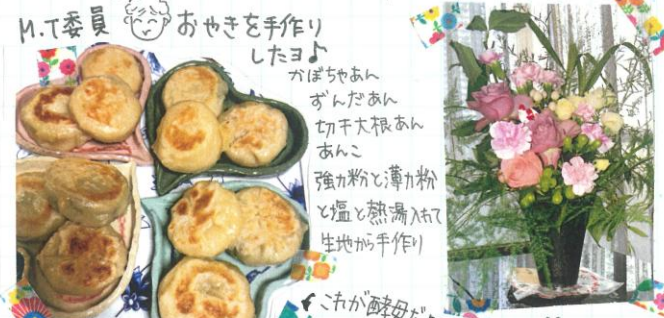 M.T委員 おやきを手作り
したヨ♪
かぼちゃあん
ずんだあん
切干大根あん
あんこ
強力粉と薄力粉
と塩と熱湯入れて
生地から手作り
これが酵母だ